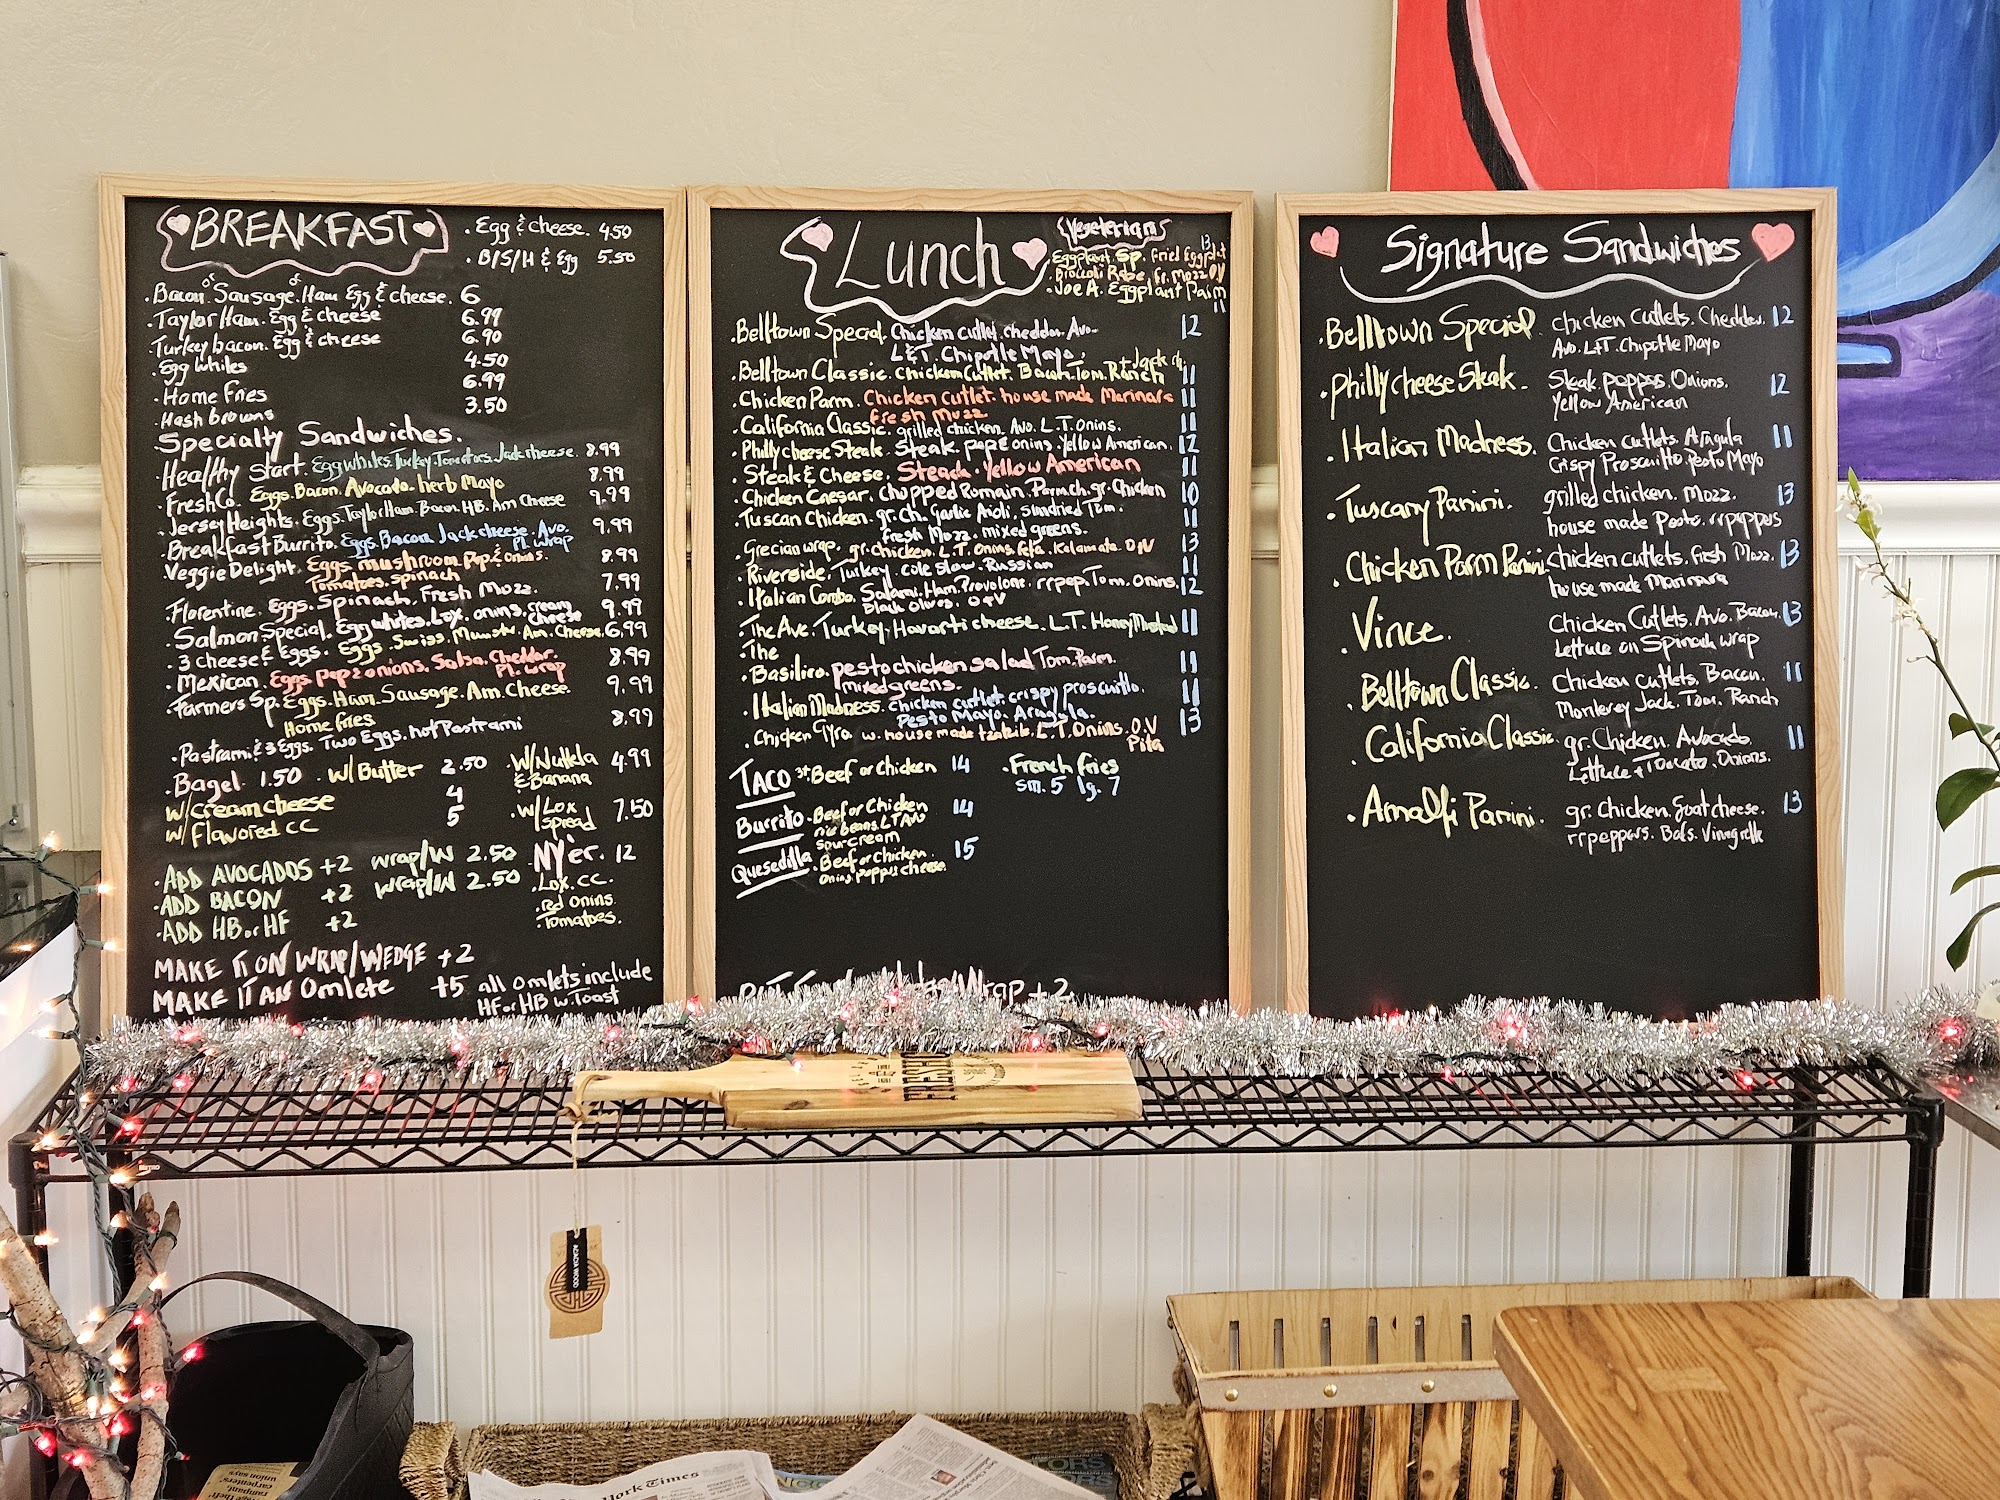 BREAKFAST
. Egg & cheese. 4.50
. B/S/H & Egg 5.50
. Bacon or Sausage or Ham Egg & cheese. 6
. Taylor Ham. Egg & cheese 6.99
. Turkey bacon. Egg & cheese 6.90
. Egg Whites 4.50
. Home Fries 6.99
. Hash browns 3.50
Specialty Sandwiches.
. Healthy Start. Egg whites. Turkey. Tomatoes. Jack cheese. 8.99
. FreshCo. Eggs. Bacon. Avocado. herb Mayo 8.99
. Jersey Heights. Eggs. Taylor Ham. Bacon. HB. Am Cheese 9.99
. Breakfast Burrito. Eggs. Bacon. Jack cheese. Avo. 9.99
Pl. wrap
. Veggie Delight. Eggs. mushroom pep & onins. 8.99
Tomatoes. spinach
. Florentine. Eggs. Spinach. Fresh Mozz. 7.99
. Salmon Special. Egg whites. Lox. onins. cream cheese 9.99
. 3 cheese & Eggs. Eggs. Swiss. Munstr. Am. Cheese. 6.99
. Mexican. Eggs. pep & onions. Salsa. Cheddar. 8.99
Pl. wrap
. Farmers Sp. Eggs. Ham. Sausage. Am. Cheese. 9.99
Home fries
. Pastrami & 3 Eggs. Two Eggs. hot Pastrami 8.99
. Bagel. 1.50 . w/ Butter 2.50 . W/ Nutella & Banana 4.99
w/ Cream cheese 4
w/ Flavored CC 5
. w/ Lox Spread 7.50
. ADD AVOCADOS +2 wrap/W 2.50
. ADD BACON +2 wrap/W 2.50
. ADD HB or HF +2
NYer. 12
. Lox. C.C.
. Red Onins.
Tomatoes.
MAKE IT ON WRAP/WEDGE +2
MAKE IT AN Omlete +5 all Omlets include
HF or HB w. Toast
Lunch
Vegeterians
Eggplant. Sp. Fried Eggplat 13
. Broccoli Rabe. Fr. Mozz OV
. Joe A. Eggplant Parm
11
. Belltown Special. Chicken cutlet. cheddar. Avo. 12
L&T. Chipotle Mayo.
+ Jack ch.
. Belltown Classic. Chicken Cutlet. Bacon. Tom. Ranch 11
. Chicken Parm. Chicken Cutlet. house made Marinara 11
fresh Mozz
. California Classic. grilled chicken. Avo. L.T. Onins. 11
. Philly cheese Steak. Steak. pep & onins. Yellow American. 12
. Steak & Cheese. Steack. Yellow American 11
. Chicken Caesar. chopped Romain. Parm ch. gr. Chicken 10
. Tuscan Chicken. gr. ch. Garlic Aioli, sundried Tom. 11
fresh Mozz. mixed greens.
. Grecian wrap. gr. chicken. L.T. Onins. feta. Kalamata. O&V 13
. Riverside. Turkey. cole slow. Russian 11
. Italian Combo. Salami. Ham. Provolone. rr pep. Tom. Onins. 12
Black Olives. O&V
. The Ave. Turkey. Havarti cheese. L.T. Honey Mustard 11
. The
Basilico. pesto chicken salad Tom. Parm. 11
mixed greens.
. Italian Madness. chicken cutlet. crispy proscuitto. 11
Pesto Mayo. Arugula.
. Chicken Gyro w. house made tzatziki. L.T. Onins. O.V 13
Pita
TACO 3+ Beef or Chicken 14
. French fries
sm. 5 lg. 7
Burrito . Beef or Chicken 14
rice beans. LT Avo
sour cream
Quesedilla . Beef or Chicken. 15
Onins. peppers cheese.
Wrap +2
Signature Sandwiches
. Belltown Special. Chicken Cutlets. Cheddar. 12
Avo. L&T. Chipotle Mayo
. Philly cheese Steak. Steak. peppers. Onions. 12
Yellow American
. Italian Madness. Chicken Cutlets. Arugula 11
Crispy Proscuitto. pesto Mayo
. Tuscany Panini. grilled chicken. Mozz. 13
house made Pesto. rr peppers
. Chicken Parm Panini. chicken cutlets. fresh Mozz. 13
house made Marinara
. Vince. Chicken Cutlets. Avo. Bacon. 13
Lettuce on Spinach wrap
. Belltown Classic. Chicken Cutlets. Bacon. 11
Monterey Jack. Tom. Ranch
California Classic. gr. Chicken. Avocado 11
Lettuce + Tomato. Onions.
. Amalfi Panini. gr. Chicken. goat cheese. 13
rr peppers. Bals. Vinegrette
ACACIA WOOD
York Times